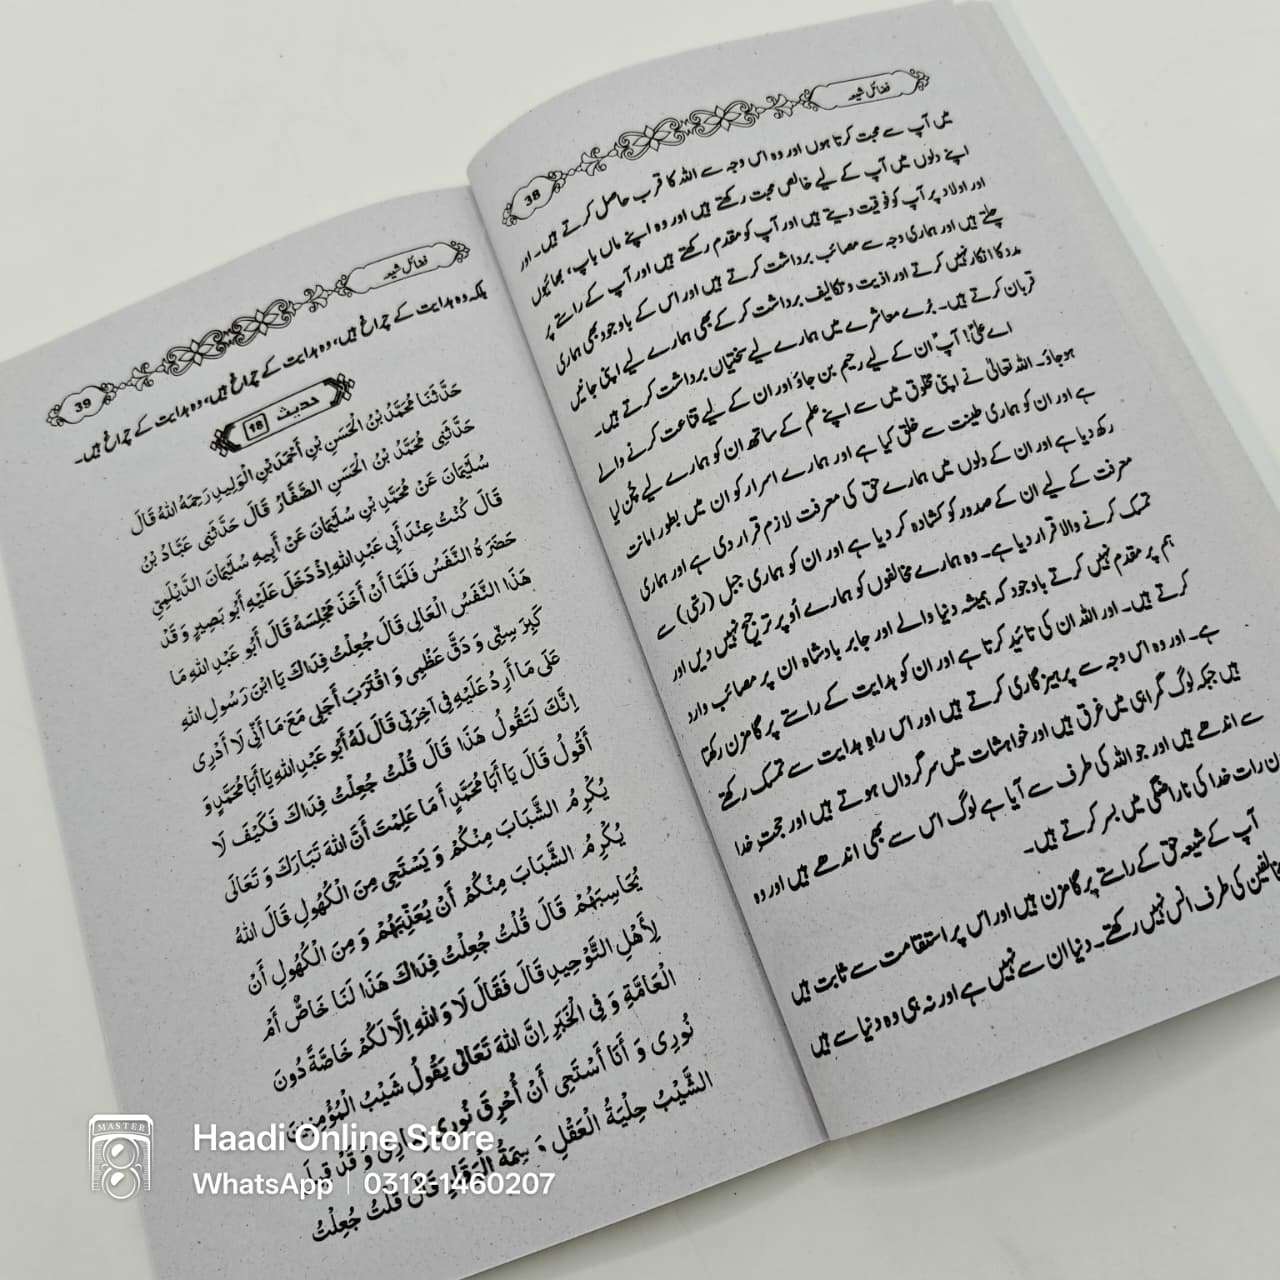 فضائل شیعہ
38
میں آپ سے محبت کرتا ہوں اور وہ اس وجہ سے اللہ کا قرب حاصل کرتے ہیں۔ اور
اپنے دلوں میں آپ کے لیے خالص محبت رکھتے ہیں اور وہ اپنے ماں باپ، بھائیوں
اور اولاد پر آپ کو فوقیت دیتے ہیں اور آپ کو مقدم رکھتے ہیں اور آپ کے راستے پر
چلتے ہیں اور ہماری وجہ سے مصائب برداشت کرتے ہیں اور اس کے باوجود بھی ہماری
مدد کا انکار نہیں کرتے اور اذیت و تکالیف برداشت کر کے بھی ہمارے لیے اپنی جانیں
قربان کرتے ہیں۔ بُرے معاشرے میں ہمارے لیے سختیاں برداشت کرتے ہیں۔
اے علیؑ! آپ ان کے لیے رحیم بن جاؤ اور ان کے لیے قناعت کرنے والے
ہو جاؤ۔ اللہ تعالیٰ نے اپنی مخلوق میں سے اپنے علم کے ساتھ ان کو ہمارے لیے چُن لیا
ہے اور ان کو ہماری طینت سے خلق کیا ہے اور ہمارے اسرار کو ان میں بطور امانت
رکھ دیا ہے اور ان کے دلوں میں ہمارے حق کی معرفت لازم قرار دی ہے اور ہماری
معرفت کے لیے ان کے صدور کو کشادہ کر دیا ہے اور ان کو ہماری جبل (رسّی) سے
تمسک کرنے والا قرار دیا ہے۔ وہ ہمارے مخالفوں کو ہمارے اُوپر ترجیح نہیں دیں اور
ہم پر مقدم نہیں کرتے باوجود کہ ہمیشہ دنیا والے اور جابر بادشاہ ان پر مصائب وارد
کرتے ہیں۔ اور اللہ ان کی تائید کرتا ہے اور ان کو ہدایت کے راستے پر گامزن رکھتا
ہے۔ اور وہ اس وجہ سے پرہیزگاری کرتے ہیں اور اس راہِ ہدایت سے تمسک رکھتے
ہیں جبکہ لوگ گمراہی میں غرق ہیں اور خواہشات میں سرگرداں ہوتے ہیں اور حجتِ خدا
سے اندھے ہیں اور جو اللہ کی طرف سے آیا ہے لوگ اس سے بھی اندھے ہیں اور وہ
رات خدا کی ناراضگی میں بسر کرتے ہیں۔
آپ کے شیعہ حق کے راستے پر گامزن ہیں اور اس پر استقامت سے ثابت ہیں
کی طرف انس نہیں رکھتے۔ دنیا ان سے نہیں ہے اور نہ ہی وہ دنیا سے ہیں
فضائل شیعہ
39
بلکہ وہ ہدایت کے چراغ ہیں، وہ ہدایت کے چراغ ہیں، وہ ہدایت کے چراغ ہیں۔
حدیث 18
حَدَّثَنَا مُحَمَّدُ بْنُ الْحَسَنِ بْنِ أَحْمَدَ بْنِ الْوَلِيدِ رَحِمَهُ اللهُ قَالَ
حَدَّثَنِي مُحَمَّدُ بْنُ الْحَسَنِ الصَّفَّارُ قَالَ حَدَّثَنِي عَبَّادُ بْنُ
سُلَيْمَانَ عَنْ مُحَمَّدِ بْنِ سُلَيْمَانَ عَنْ أَبِيهِ سُلَيْمَانَ الدَّيْلَمِيِّ
قَالَ كُنْتُ عِنْدَ أَبِي عَبْدِ اللهِ إِذْ دَخَلَ عَلَيْهِ أَبُو بَصِيرٍ وَ قَدْ
حَضَرَهُ النَّفَسُ فَلَمَّا أَنْ أَخَذَ مَجْلِسَهُ قَالَ أَبُو عَبْدِ اللهِ مَا
هَذَا النَّفَسُ الْعَالِي قَالَ جُعِلْتُ فِدَاكَ يَا ابْنَ رَسُولِ اللهِ
كَبِرَ سِنِّي وَ دَقَّ عَظْمِي وَ اقْتَرَبَ أَجَلِي مَعَ مَا أَنِّي لَا أَدْرِي
عَلَى مَا أَرِدُ عَلَيْهِ فِي آخِرَتِي قَالَ لَهُ أَبُو عَبْدِ اللهِ يَا أَبَا مُحَمَّدٍ وَ
إِنَّكَ لَتَقُولُ هَذَا قَالَ قُلْتُ جُعِلْتُ فِدَاكَ فَكَيْفَ لَا
أَقُولُ قَالَ يَا أَبَا مُحَمَّدٍ أَمَا عَلِمْتَ أَنَّ اللهَ تَبَارَكَ وَ تَعَالَى
يُكْرِمُ الشَّبَابَ مِنْكُمْ وَ يَسْتَحِي مِنَ الْكُهُولِ قَالَ اللهُ
يُكْرِمُ الشَّبَابَ مِنْكُمْ أَنْ يُعَذِّبَهُمْ وَ مِنَ الْكُهُولِ أَنْ
يُحَاسِبَهُمْ قَالَ قُلْتُ جُعِلْتُ فِدَاكَ هَذَا لَنَا خَاصٌّ أَمْ
لِأَهْلِ التَّوْحِيدِ قَالَ فَقَالَ لَا وَ اللهِ إِلَّا لَكُمْ خَاصَّةً دُونَ
الْعَامَّةِ وَ فِي الْخَبَرِ إِنَّ اللهَ تَعَالَى يَقُولُ شَيْبُ الْمُؤْمِنِينَ
نُورِي وَ أَنَا أَسْتَحِي أَنْ أُحْرِقَ نُورِي بِنَارِي وَ قَدْ قِيلَ
الشَّيْبُ حِلْيَةُ الْعَقْلِ وَ سِمَةُ الْوَقَارِ قَالَ قُلْتُ جُعِلْتُ
MASTER
Haadi Online Store
WhatsApp | 0312-1460207